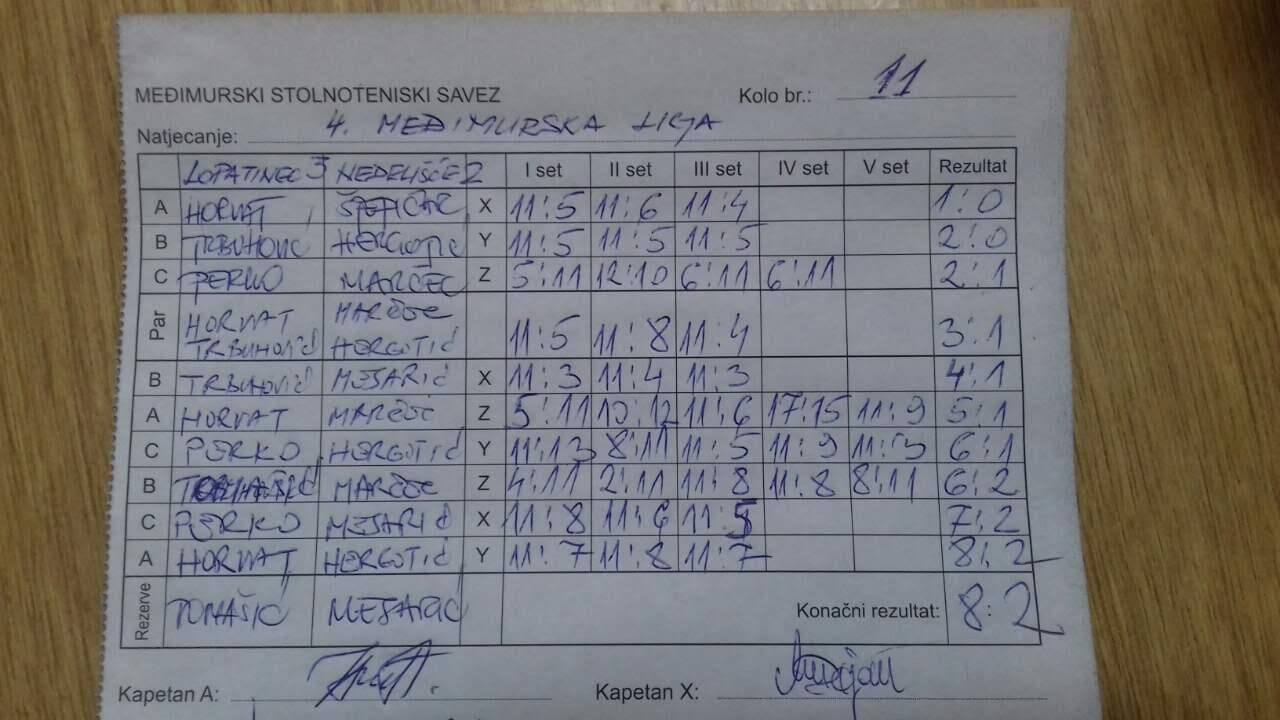 MEĐIMURSKI STOLNOTENISKI SAVEZ Kolo br.: 11
Natjecanje: 4. MEĐIMURSKA LIGA
LOPATINEC 3 NEDELIŠĆE 2 I set II set III set IV set V set Rezultat
A HORVAT ŠTEFIČAR X 11:5 11:6 11:4 1:0
B TRBUHOVIĆ HERGOTIĆ Y 11:5 11:5 11:5 2:0
C PERKO MARČEC Z 5:11 12:10 6:11 6:11 2:1
Par HORVAT MARČEC
TRBUHOVIĆ HERGOTIĆ 11:5 11:8 11:4 3:1
B TRBUHOVIĆ MESARIĆ X 11:3 11:4 11:3 4:1
A HORVAT MARČEC Z 5:11 10:12 11:6 17:15 11:9 5:1
C PERKO HERGOTIĆ Y 11:13 8:11 11:5 11:9 11: 6:1
B TOMAŠIĆ MARČEC Z 4:11 2:11 11:8 11:8 8:11 6:2
C PERKO MESARIĆ X 11:8 11:6 11:5 7:2
A HORVAT HERGOTIĆ Y 11:7 11:8 11:7 8:2
Rezerve TOMAŠIĆ MESARIĆ Konačni rezultat: 8:2
Kapetan A: Kapetan X: